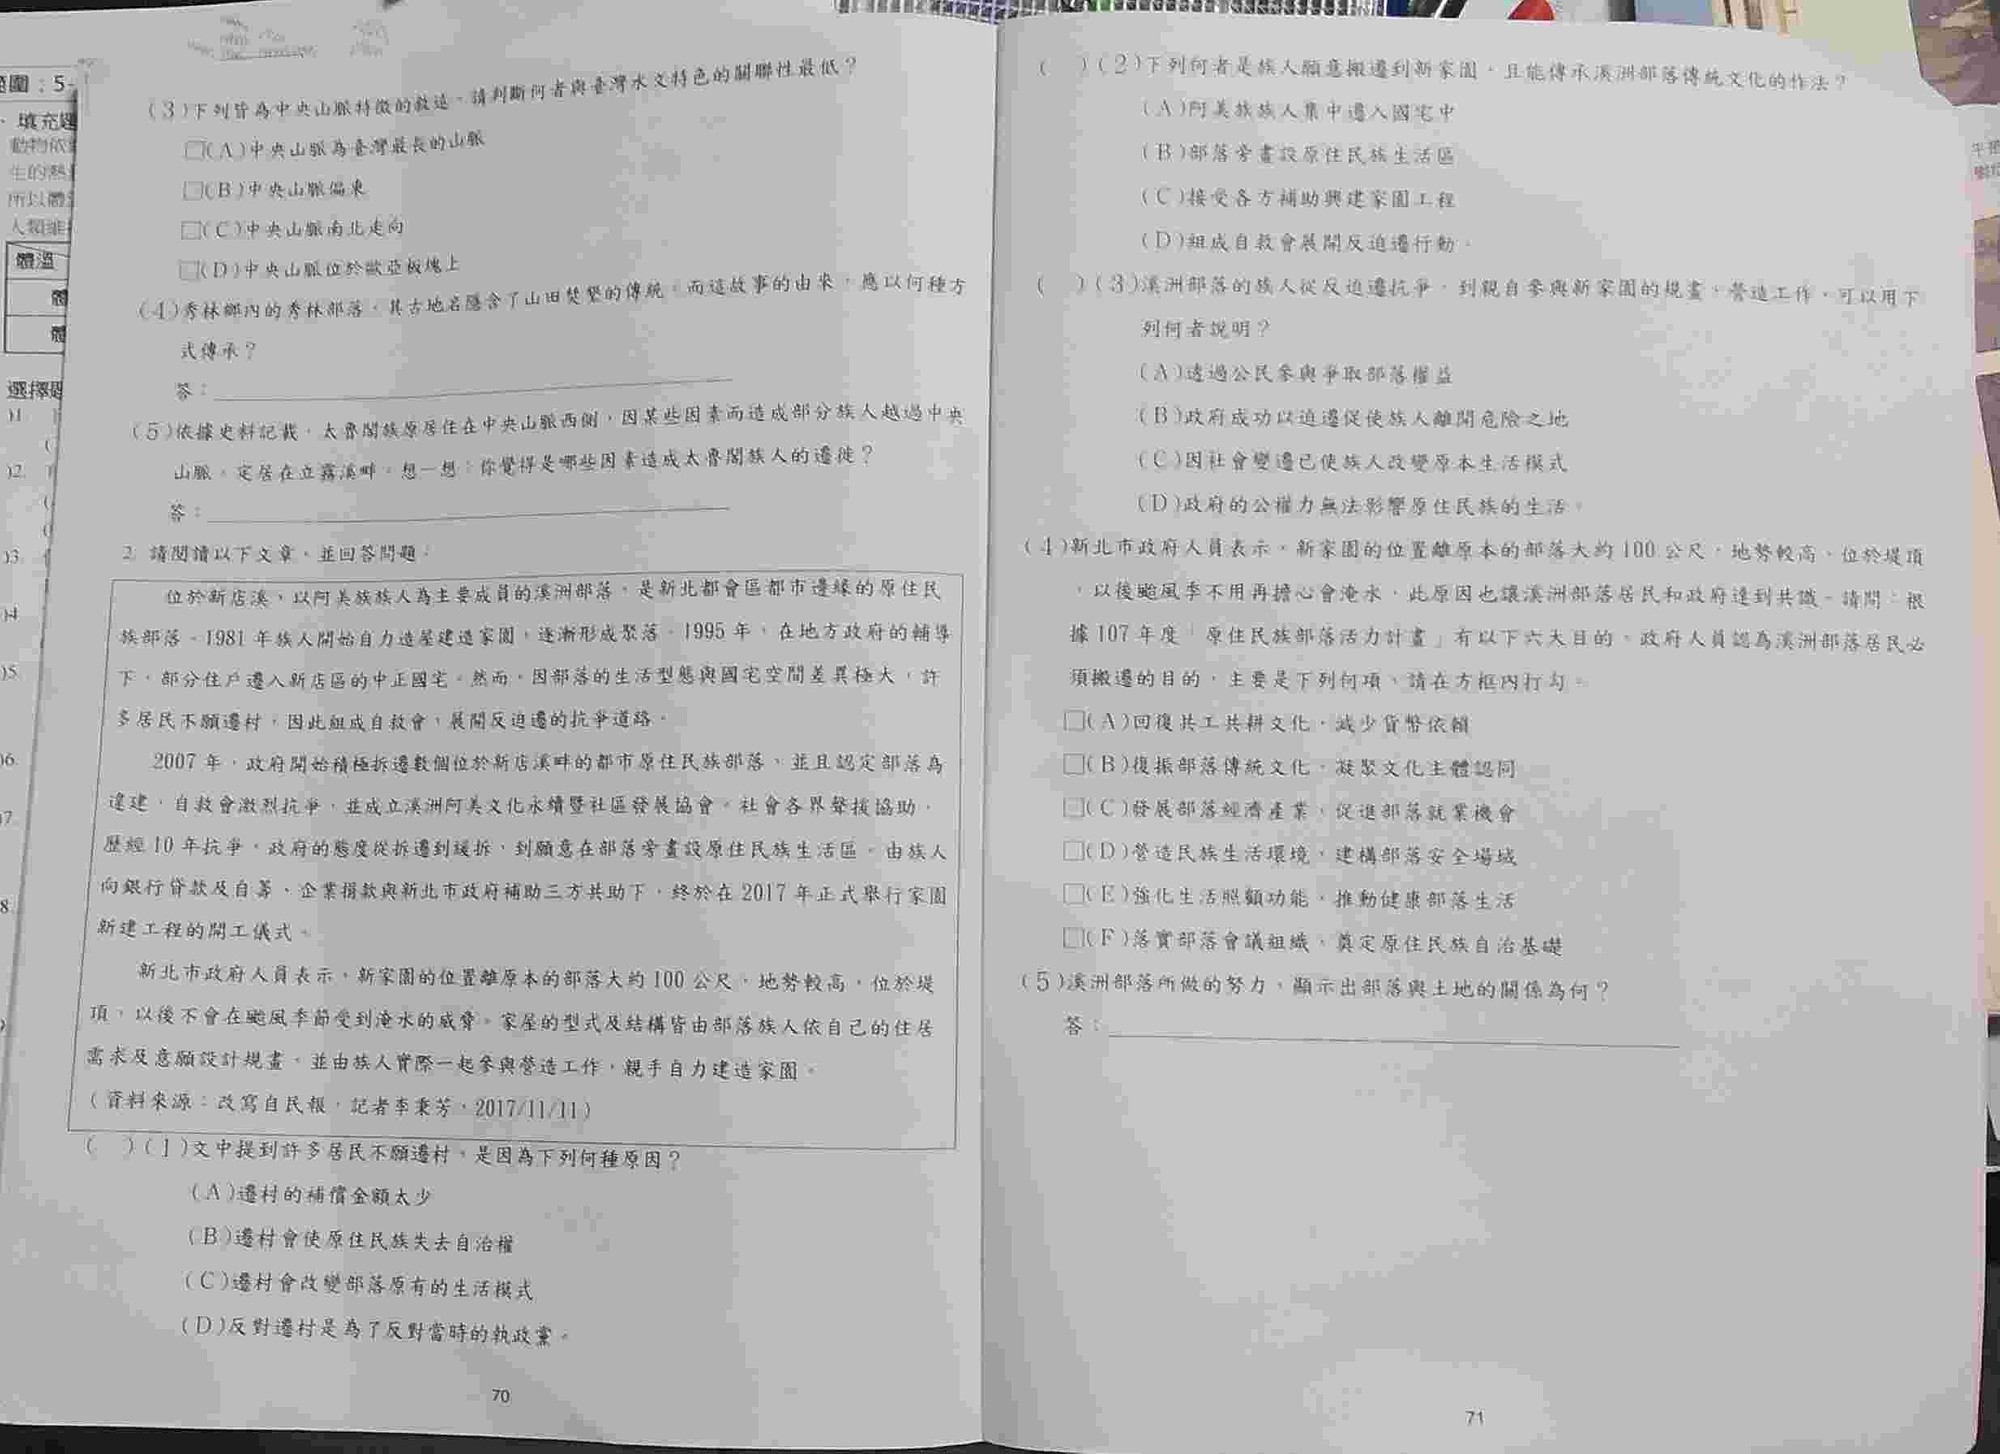 範圍：5-
填充題
動物依
生的熱
所以體
人類維
體溫
體
體
選擇題
)1
)2.
)3.
)4
)5.
)6.
)7.
8.
(3)下列皆為中央山脈特徵的敘述，請判斷何者與臺灣水文特色的關聯性最低？
□(A)中央山脈為臺灣最長的山脈
□(B)中央山脈偏東
□(C)中央山脈南北走向
□(D)中央山脈位於歐亞板塊上
(4)秀林鄉內的秀林部落，其古地名隱含了山田焚墾的傳統。而這故事的由來，應以何種方
式傳承？
答：
(5)依據史料記載，太魯閣族原居住在中央山脈西側，因某些因素而造成部分族人越過中央
山脈，定居在立霧溪畔。想一想：你覺得是哪些因素造成太魯閣族人的遷徙？
答：
2. 請閱讀以下文章，並回答問題。
位於新店溪、以阿美族族人為主要成員的溪洲部落，是新北都會區都市邊緣的原住民
族部落。1981 年族人開始自力造屋建造家園，逐漸形成聚落。1995 年，在地方政府的輔導
下，部分住戶遷入新店區的中正國宅。然而，因部落的生活型態與國宅空間差異極大，許
多居民不願遷村，因此組成自救會，展開反迫遷的抗爭道路。
2007 年，政府開始積極拆遷數個位於新店溪畔的都市原住民族部落，並且認定部落為
違建，自救會激烈抗爭，並成立溪洲阿美文化永續暨社區發展協會。社會各界聲援協助，
歷經 10 年抗爭，政府的態度從拆遷到緩拆，到願意在部落旁畫設原住民族生活區。由族人
向銀行貸款及自籌、企業捐款與新北市政府補助三方共助下，終於在 2017 年正式舉行家園
新建工程的開工儀式。
新北市政府人員表示，新家園的位置離原本的部落大約 100 公尺，地勢較高，位於堤
頂，以後不會在颱風季節受到淹水的威脅。家屋的型式及結構皆由部落族人依自己的住居
需求及意願設計規畫，並由族人實際一起參與營造工作，親手自力建造家園。
(資料來源：改寫自民報，記者李秉芳，2017/11/11)
(　)(1)文中提到許多居民不願遷村，是因為下列何種原因？
(A)遷村的補償金額太少
(B)遷村會使原住民族失去自治權
(C)遷村會改變部落原有的生活模式
(D)反對遷村是為了反對當時的執政黨。
70
(　)(2)下列何者是族人願意搬遷到新家園，且能傳承溪洲部落傳統文化的作法？
(A)阿美族族人集中遷入國宅中
(B)部落旁畫設原住民族生活區
(C)接受各方補助興建家園工程
(D)組成自救會展開反迫遷行動。
(　)(3)溪洲部落的族人從反迫遷抗爭，到親自參與新家園的規畫、營造工作，可以用下
列何者說明？
(A)透過公民參與爭取部落權益
(B)政府成功以迫遷促使族人離開危險之地
(C)因社會變遷已使族人改變原本生活模式
(D)政府的公權力無法影響原住民族的生活。
(4)新北市政府人員表示，新家園的位置離原本的部落大約 100 公尺，地勢較高、位於堤頂
，以後颱風季不用再擔心會淹水，此原因也讓溪洲部落居民和政府達到共識。請問：根
據 107 年度「原住民族部落活力計畫」有以下六大目的，政府人員認為溪洲部落居民必
須搬遷的目的，主要是下列何項，請在方框內打勾。
□(A)回復共工共耕文化，減少貨幣依賴
□(B)復振部落傳統文化，凝聚文化主體認同
□(C)發展部落經濟產業，促進部落就業機會
□(D)營造民族生活環境，建構部落安全場域
□(E)強化生活照顧功能，推動健康部落生活
□(F)落實部落會議組織，奠定原住民族自治基礎
(5)溪洲部落所做的努力，顯示出部落與土地的關係為何？
答：
71